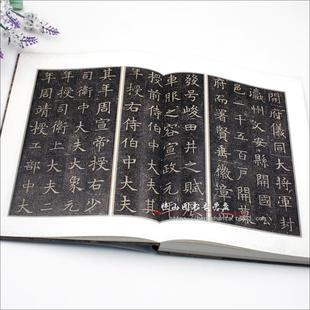 開府儀同大將軍封
瀛州文安縣開國公
邑一千五百戶開幕
府而署賢垂徽章而
發号峻田井之賦
車服之容宣政元
授前侍伯中大夫其
年授右侍伯中大夫
其年周宣帝授右少
司衛中大夫大象元
年授司衛上大夫二
年周靖授工部中大